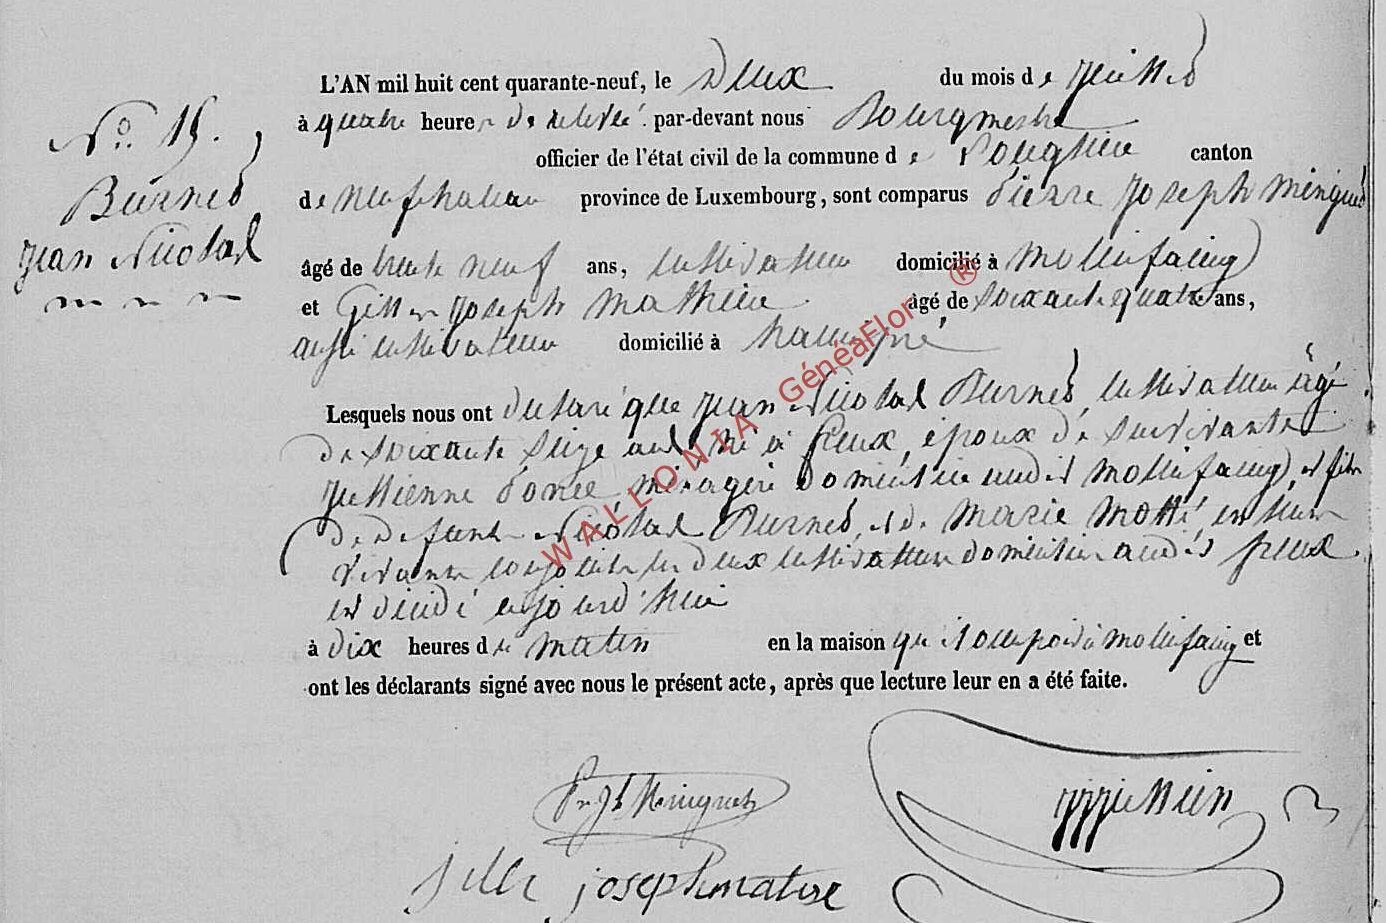 N° 15.
Burnet
Jean Nicolas
L'AN mil huit cent quarante-neuf, le Deux du mois de juillet
à quatre heures de relevé par-devant nous Bourgmestre
officier de l'état civil de la commune de canton
de Neufchateau province de Luxembourg, sont comparus Pierre Joseph Minguet
âgé de trente neuf ans, cultivateur domicilié à Mollifaing
et Gille Joseph Mathieu âgé de soixante quatre ans,
aussi cultivateur domicilié à
Lesquels nous ont déclaré que Jean Nicolas Burnet, cultivateur âgé
de soixante seize ans né à freux, époux de survivante
Julienne ménagère domiciliée audit Mollifaing, et fils
de defunt Nicolas Burnet, et de Marie en leur
vivant conjoints les deux cultivateurs domiciliés audit freux
est décédé aujourd'hui
à dix heures du matin en la maison qu'il occupoit à Mollifaing et
ont les déclarants signé avec nous le présent acte, après que lecture leur en a été faite.
Minguet
Gille joseph matieu
WALLONIA GénéaFlor ®